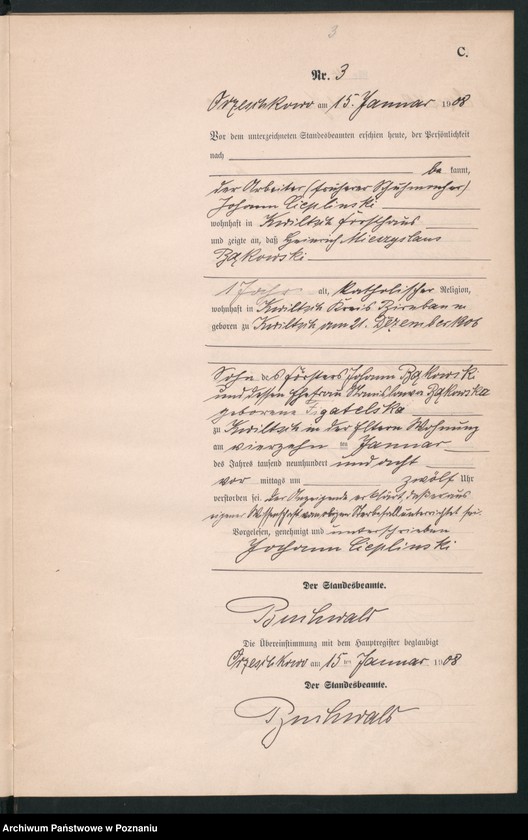 3
C.
Nr. 3
Orzeschkowo am 15. Januar 1908
Vor dem unterzeichneten Standesbeamten erschien heute, der Persönlichkeit
nach
be kannt,
der Arbeiter (früherer Schuhmacher)
Johann Cieplinski
wohnhaft in Kwiltsch Forsthaus
und zeigte an, daß Heinrich Mieczyslaus
Bąkowski
1 Jahr alt, katholischer Religion,
wohnhaft in Kwiltsch Kreis Birnbaum
geboren zu Kwiltsch am 21. Dezember 1906
Sohn des Försters Johann Bąkowski
und dessen Ehefrau Stanislawa Bąkowska
geborene
zu Kwiltsch in der Eltern Wohnung
am vierzehn ten Januar
des Jahres tausend neunhundert und acht
vor mittags um zwölf Uhr
verstorben sei. Der Anzeigende erklärt, daß er aus
eigener Wissenschaft von obigen Sterbefall unterrichtet sei.
Vorgelesen, genehmigt und unterschrieben
Johann Cieplinski
Der Standesbeamte.
Buchwald
Die Übereinstimmung mit dem Hauptregister beglaubigt
Orzeschkowo am 15 ten Januar 1908
Der Standesbeamte.
Buchwald
Archiwum Państwowe w Poznaniu